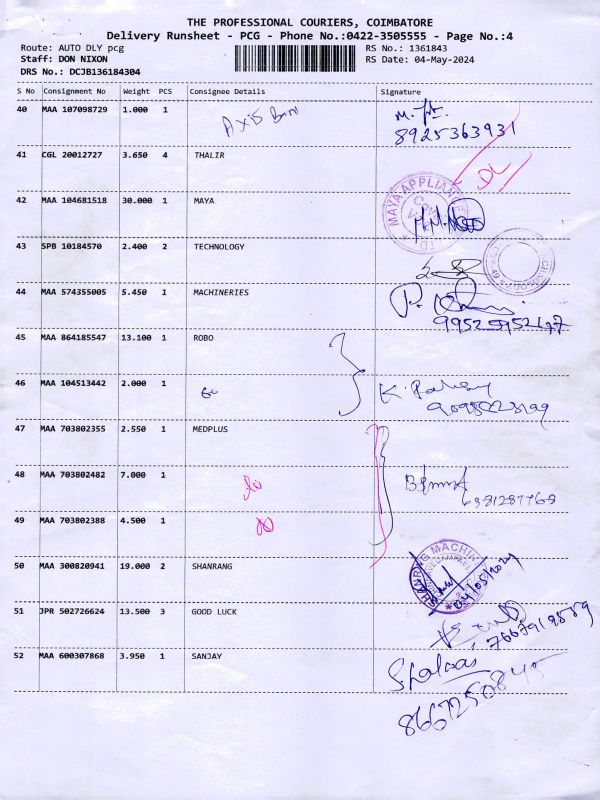 THE PROFESSIONAL COURIERS, COIMBATORE
Delivery Runsheet - PCG - Phone No.:0422-3505555 - Page No.:4
Route: AUTO DLY pcg
Staff: DON NIXON
DRS No.: DCJB136184304
RS No.: 1361843
RS Date: 04-May-2024
S No Consignment No Weight PCS Consignee Details Signature
40 MAA 107098729 1.000 1 Axis
8925363931
41 CGL 20012727 3.650 4 THALIR
42 MAA 104681518 30.000 1 MAYA
MAYA APPLIAN
43 SPB 10184570 2.400 2 TECHNOLOGY
44 MAA 574355005 5.450 1 MACHINERIES
45 MAA 864185547 13.100 1 ROBO
46 MAA 104513442 2.000 1
K.
47 MAA 703802355 2.550 1 MEDPLUS
48 MAA 703802482 7.000 1
6381287768
49 MAA 703802388 4.500 1
50 MAA 300820941 19.000 2 SHANRANG
MACHIN
04/05/2024
51 JPR 502726624 13.500 3 GOOD LUCK
7667919889
52 MAA 600307868 3.950 1 SANJAY